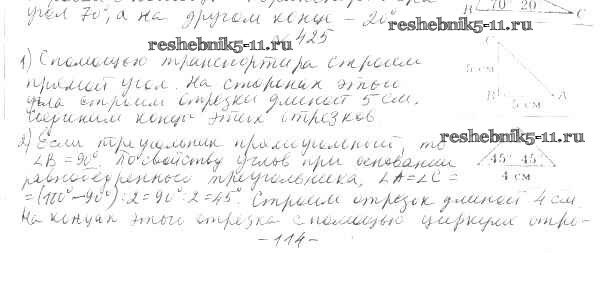 угол 70°, а на другом конце – 20°.
B 70° 20° C
reshebnik5-11.ru
№ 425
reshebnik5-11.ru
1) С помощью транспортира строим
прямой угол. На сторонах этого
угла строим отрезки длиной 5 см.
концы этих отрезков.
C
5 см
B
5 см
A
2) Если треугольник прямоугольный, то
∠B = 90°. По свойству углов при основании
равнобедренного треугольника, ∠A = ∠C =
= (180° – 90°) : 2 = 90° : 2 = 45°. Строим отрезок длиной 4 см.
На концах этого отрезка с помощью циркуля отре-
reshebnik5-11.ru
45° 45°
4 см
- 114 -